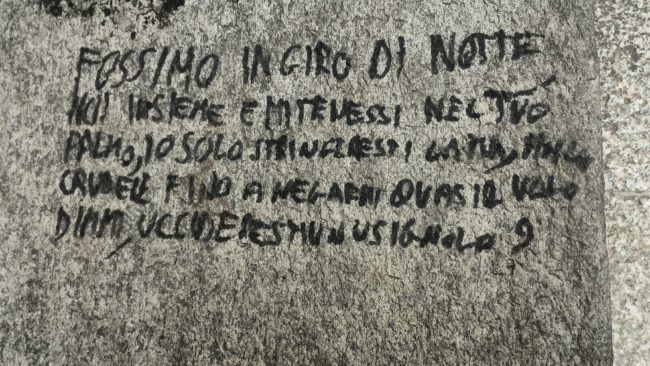 FOSSIMO IN GIRO DI NOTTE,
NOI INSIEME E MI TENESSI NEL TUO
PALMO, IO SOLO STRINGERESTI LA TUA,
CRUDELE FINO A NEGARMI QUASI IL VOLO
DIMMI, UCCIDERESTI UN USIGNOLO ?